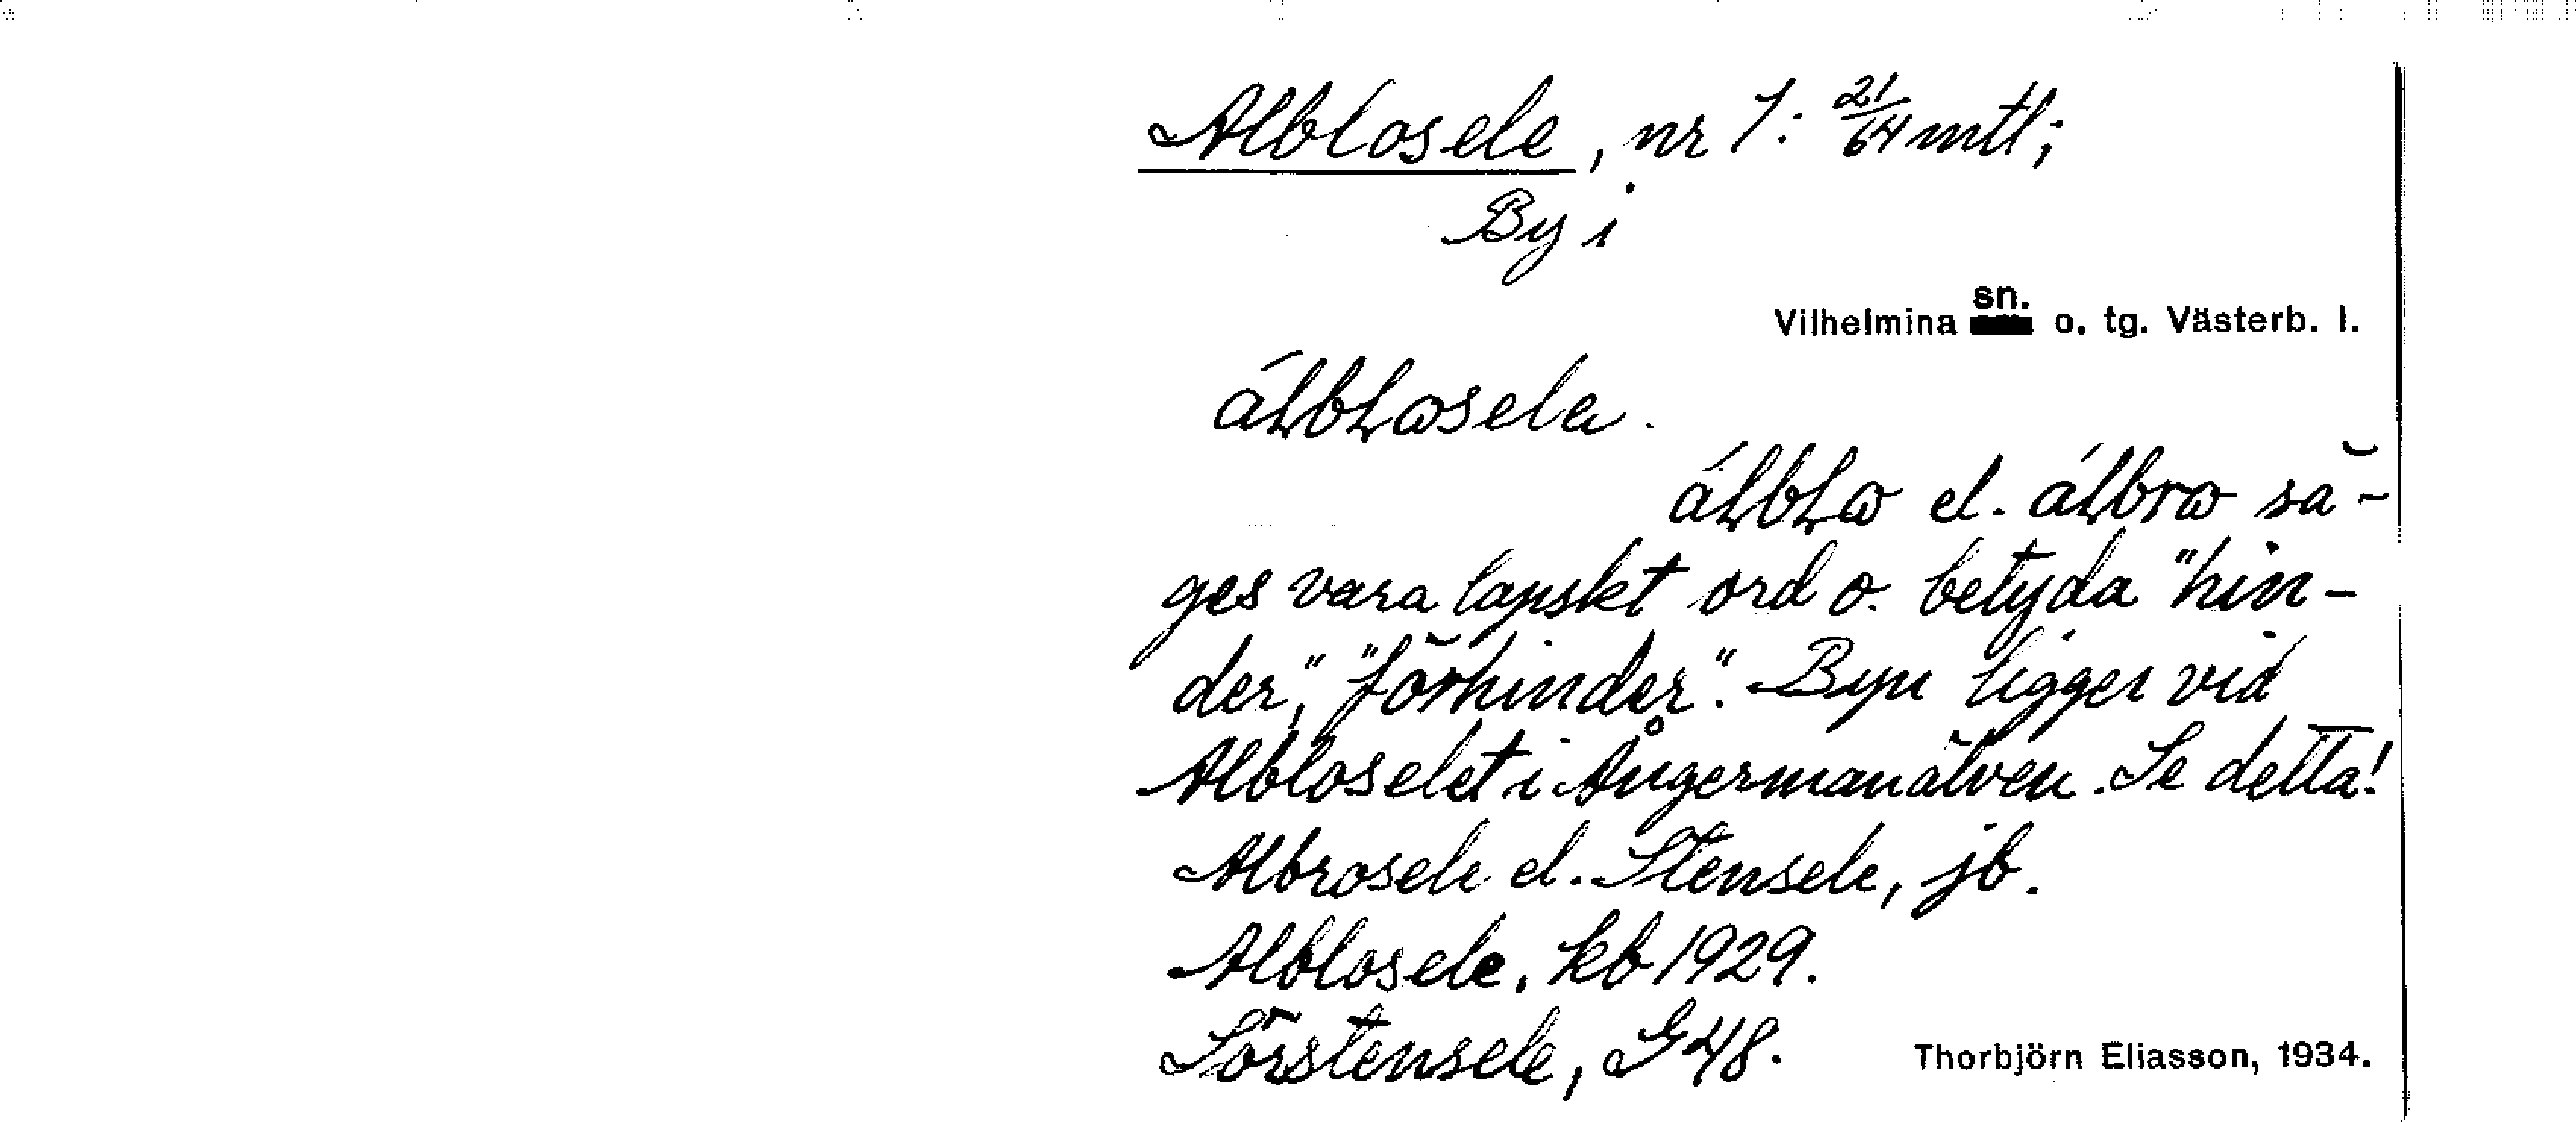 Alblosele, nr 1: 21/64 mtl;
By i
Vilhelmina sn. o. tg. Västerb. l.
álbLɷsela.
álbLɷ el. álbrɷ sä-
ges vara lapskt ord o. betyda "hin-
der", "förhinder". Byn ligger vid
Albloselet i Ångermanälven. Se detta!
Albrosele el. Stensele, jb.
Alblosele, kb 1929.
Sörstensele, G 48.
Thorbjörn Eliasson, 1934.